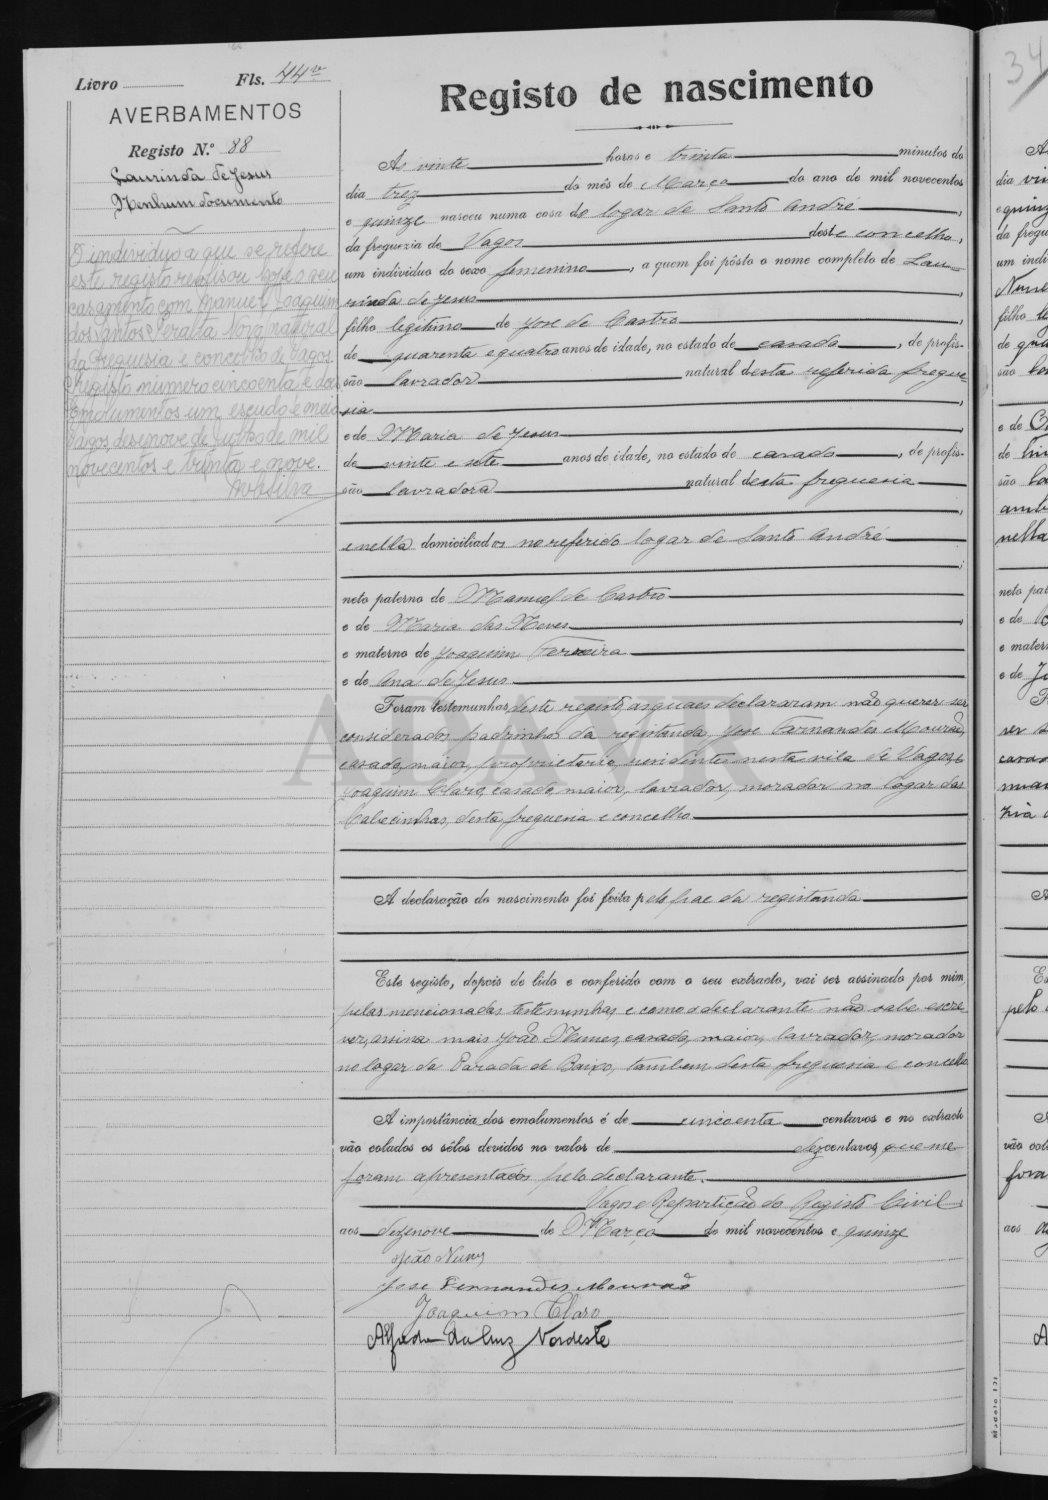 Livro Fls. 44v
AVERBAMENTOS
Registo N.º 88
Laurinda de Jesus
Nenhum documento
O individuo a que se refere
este registo realisou hoje o seu
casamento com Manuel Joaquim
dos Santos Peralta Novo natural
da freguesia e concelho de Vagos.
Registo numero cincoenta e dois
Emolumentos um escudo e meio
Vagos, desenove de Julho de mil
novecentos e trinta e nove.
Registo de nascimento
Ás vinte horas e trinta minutos do
dia trez do mês de Março do ano de mil novecentos
e quinze nasceu numa casa do logar de Santo André,
da freguezia de Vagos deste concelho,
um individuo do sexo femenino, a quem foi pôsto o nome completo de Lau-
rinda de Jesus,
filho legitimo de José de Castro,
de quarenta e quatro anos de idade, no estado de casado, de profis-
são lavrador natural desta referida fregue-
sia,
e de Maria de Jesus,
de vinte e sete anos de idade, no estado de casada, de profis-
são lavradora natural desta freguesia
,
e nella domiciliados no referido logar de Santo André
;
neto paterno de Manuel de Castro
e de Maria das Neves,
e materno de Joaquim Ferreira
e de Ana de Jesus
Foram testemunhas deste registo, as quaes declararam não querer ser
considerados padrinhos da registanda, José Fernandes Mourão,
casado, maior, proprietario, residente nesta vila de Vagos, e
Joaquim Claro, casado, maior, lavrador, morador no logar das
Cabecinhas, desta freguesia e concelho
A declaração do nascimento foi feita pelo pae da registanda
Este registo, depois de lido e conferido com o seu extracto, vai ser assinado por mim,
pelas mencionadas testemunhas e como o declarante não sabe escre-
ver, assina mais João Nunes, casado, maior, lavrador, morador
no logar da Parada de Baixo, tambem desta freguesia e concelho
A importância dos emolumentos é de cincoenta centavos e no extracto
vão colados os sêlos devidos no valor de dez centavos, que me
foram apresentados pelo declarante.
Vagos e Repartição do Registo Civil
aos dezenove de Março de mil novecentos e quinze
João Nunes
José Fernandes Mourão
Joaquim Claro
Alfredo da Luz Nordeste
ADAVR
34
Modelo 121